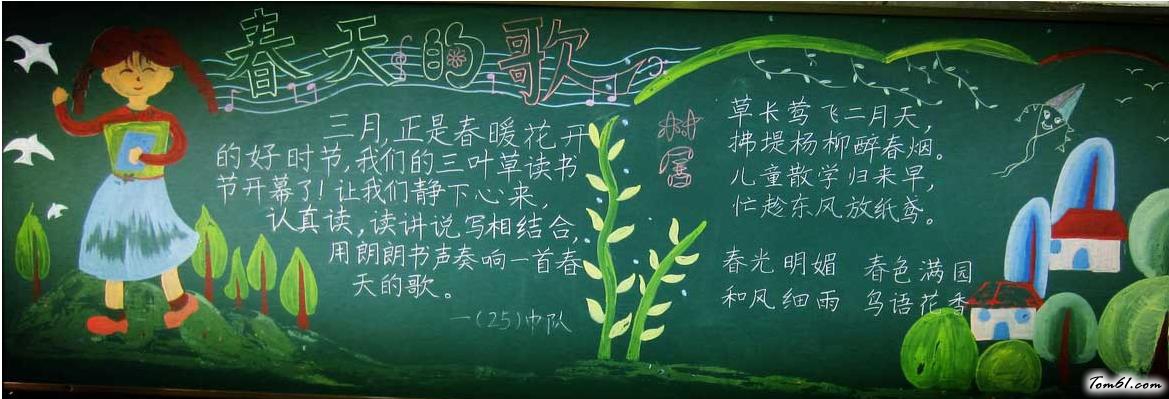 春天的歌
三月，正是春暖花开
的好时节，我们的三叶草读书
节开幕了！让我们静下心来，
认真读，读讲说写相结合，
用朗朗书声奏响一首春
天的歌。
一（25）中队
草长莺飞二月天，
拂堤杨柳醉春烟。
儿童散学归来早，
忙趁东风放纸鸢。
春光明媚 春色满园
和风细雨 鸟语花香
Tom61.com